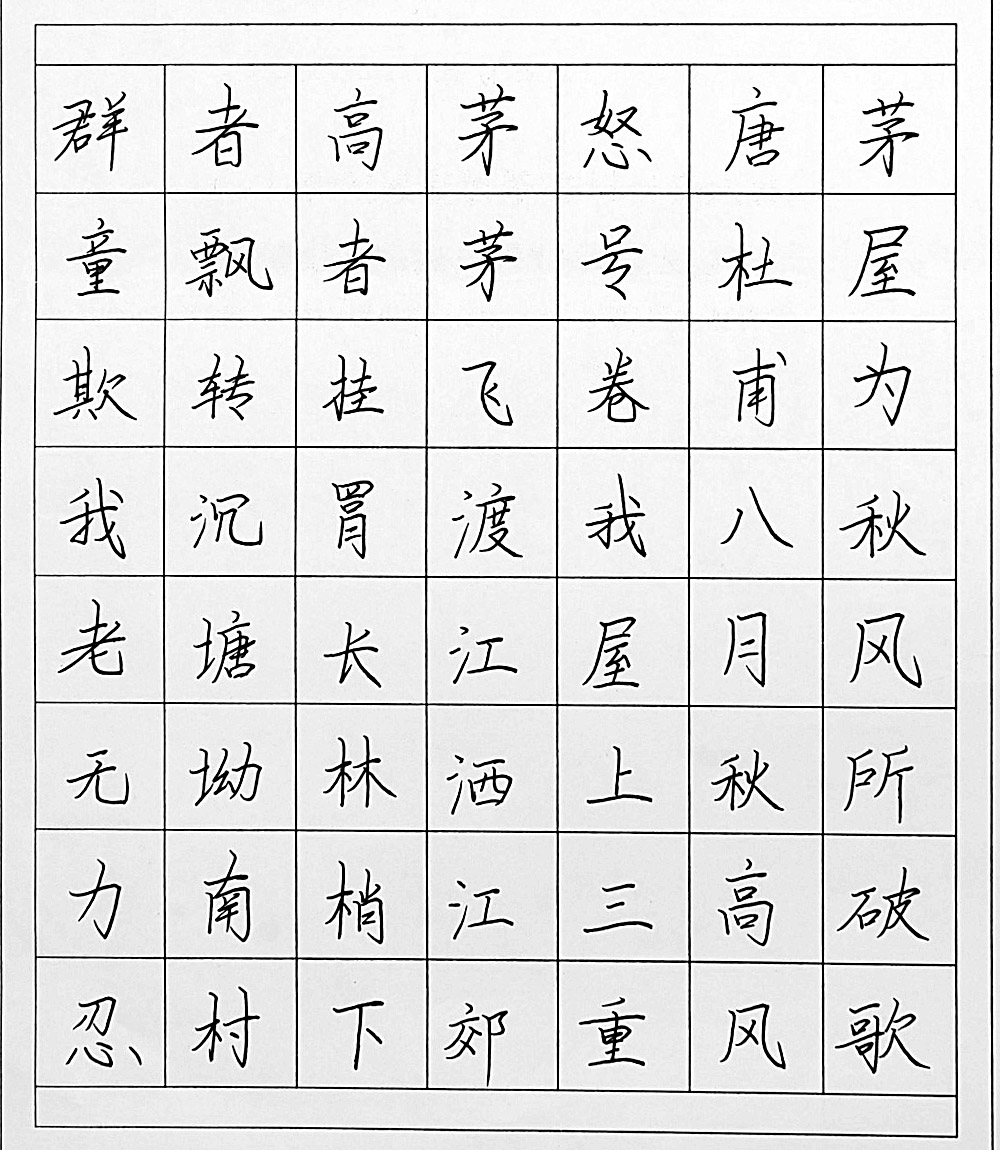 茅屋为秋风所破歌
唐杜甫八月秋高风
怒号卷我屋上三重
茅茅飞渡江洒江郊
高者挂罥长林梢下
者飘转沉塘坳南村
群童欺我老无力忍